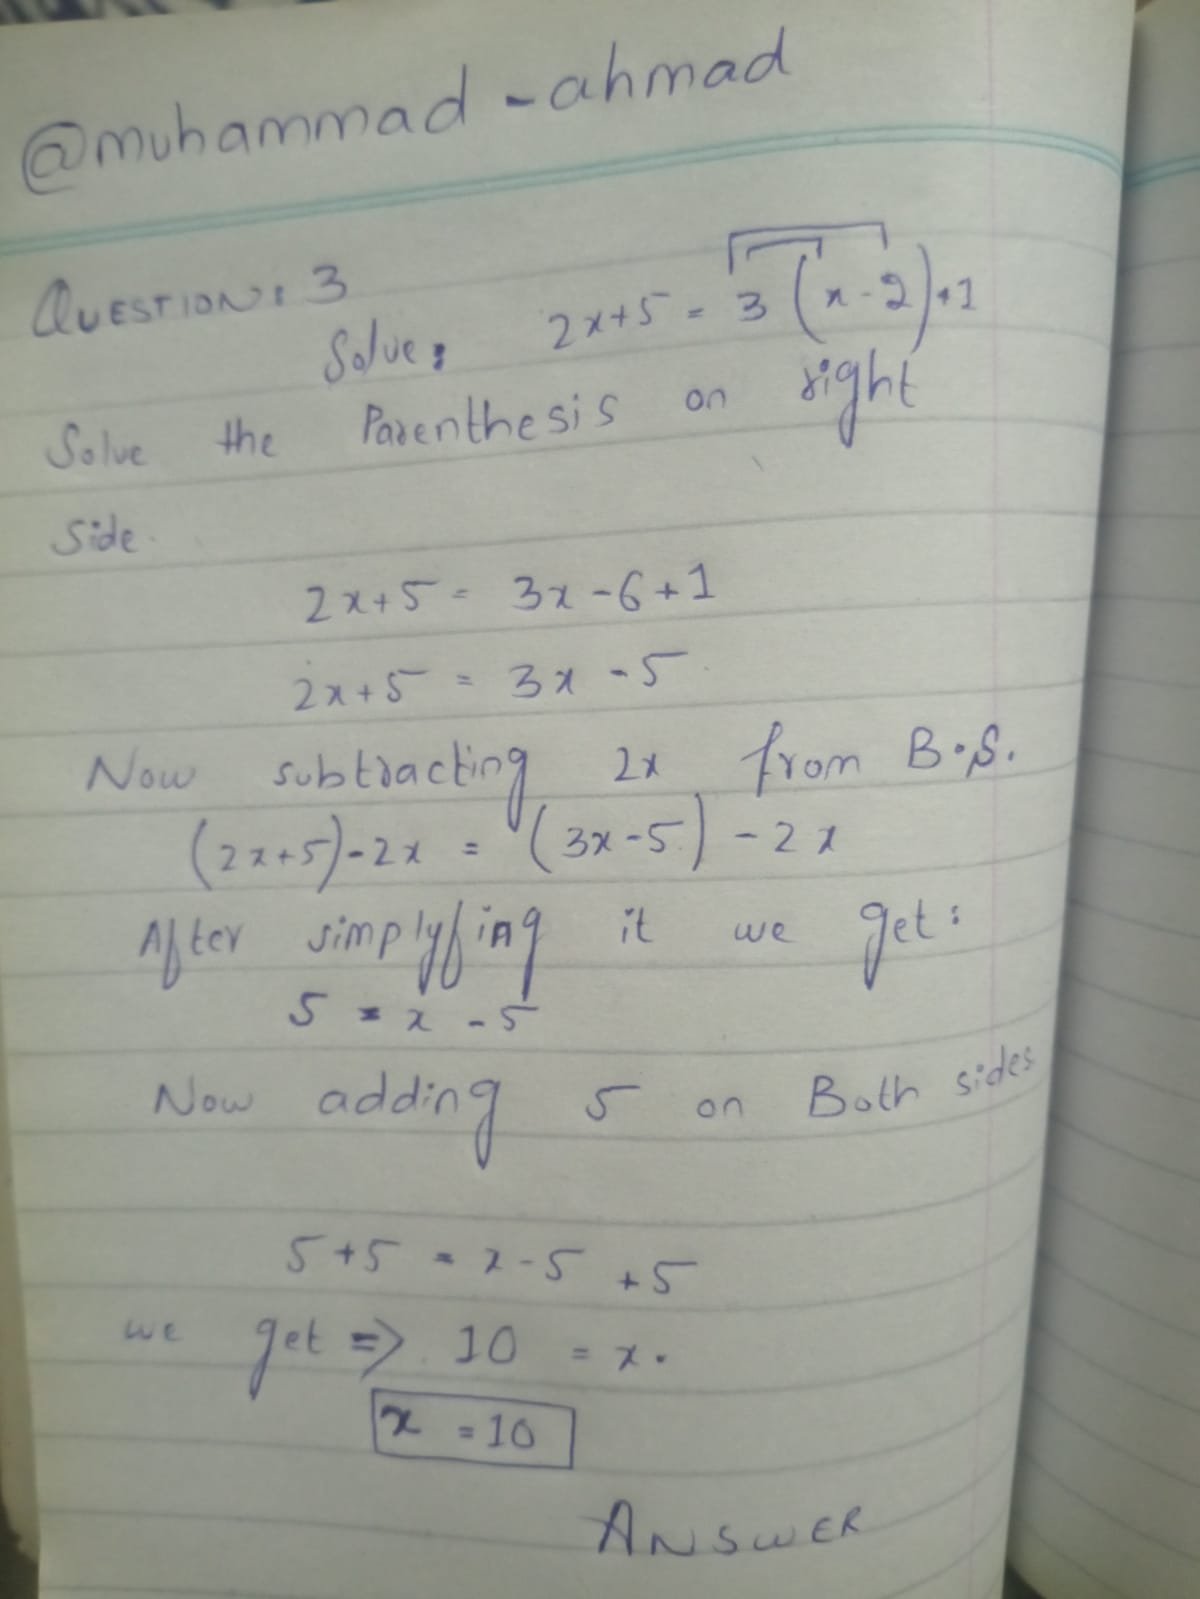 @muhammad-ahmad
QUESTION: 3
Solve: 2x+5 = 3(x-2)+1
Solve the Parenthesis on right
Side.
2x+5 = 3x-6+1
2x+5 = 3x-5
Now subtracting 2x from B.S.
(2x+5)-2x = (3x-5)-2x
After simplyfing it we get:
5 = x-5
Now adding 5 on Both sides
5+5 = x-5+5
we get => 10 = x.
x = 10
ANSWER